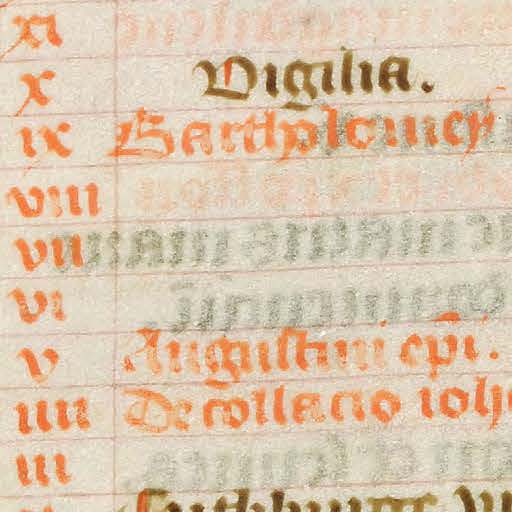 xi
x Vigilia.
ix Bartholomej
viii
vii
vi
v Augustini epi.
iiii Decollacio ioh
iii